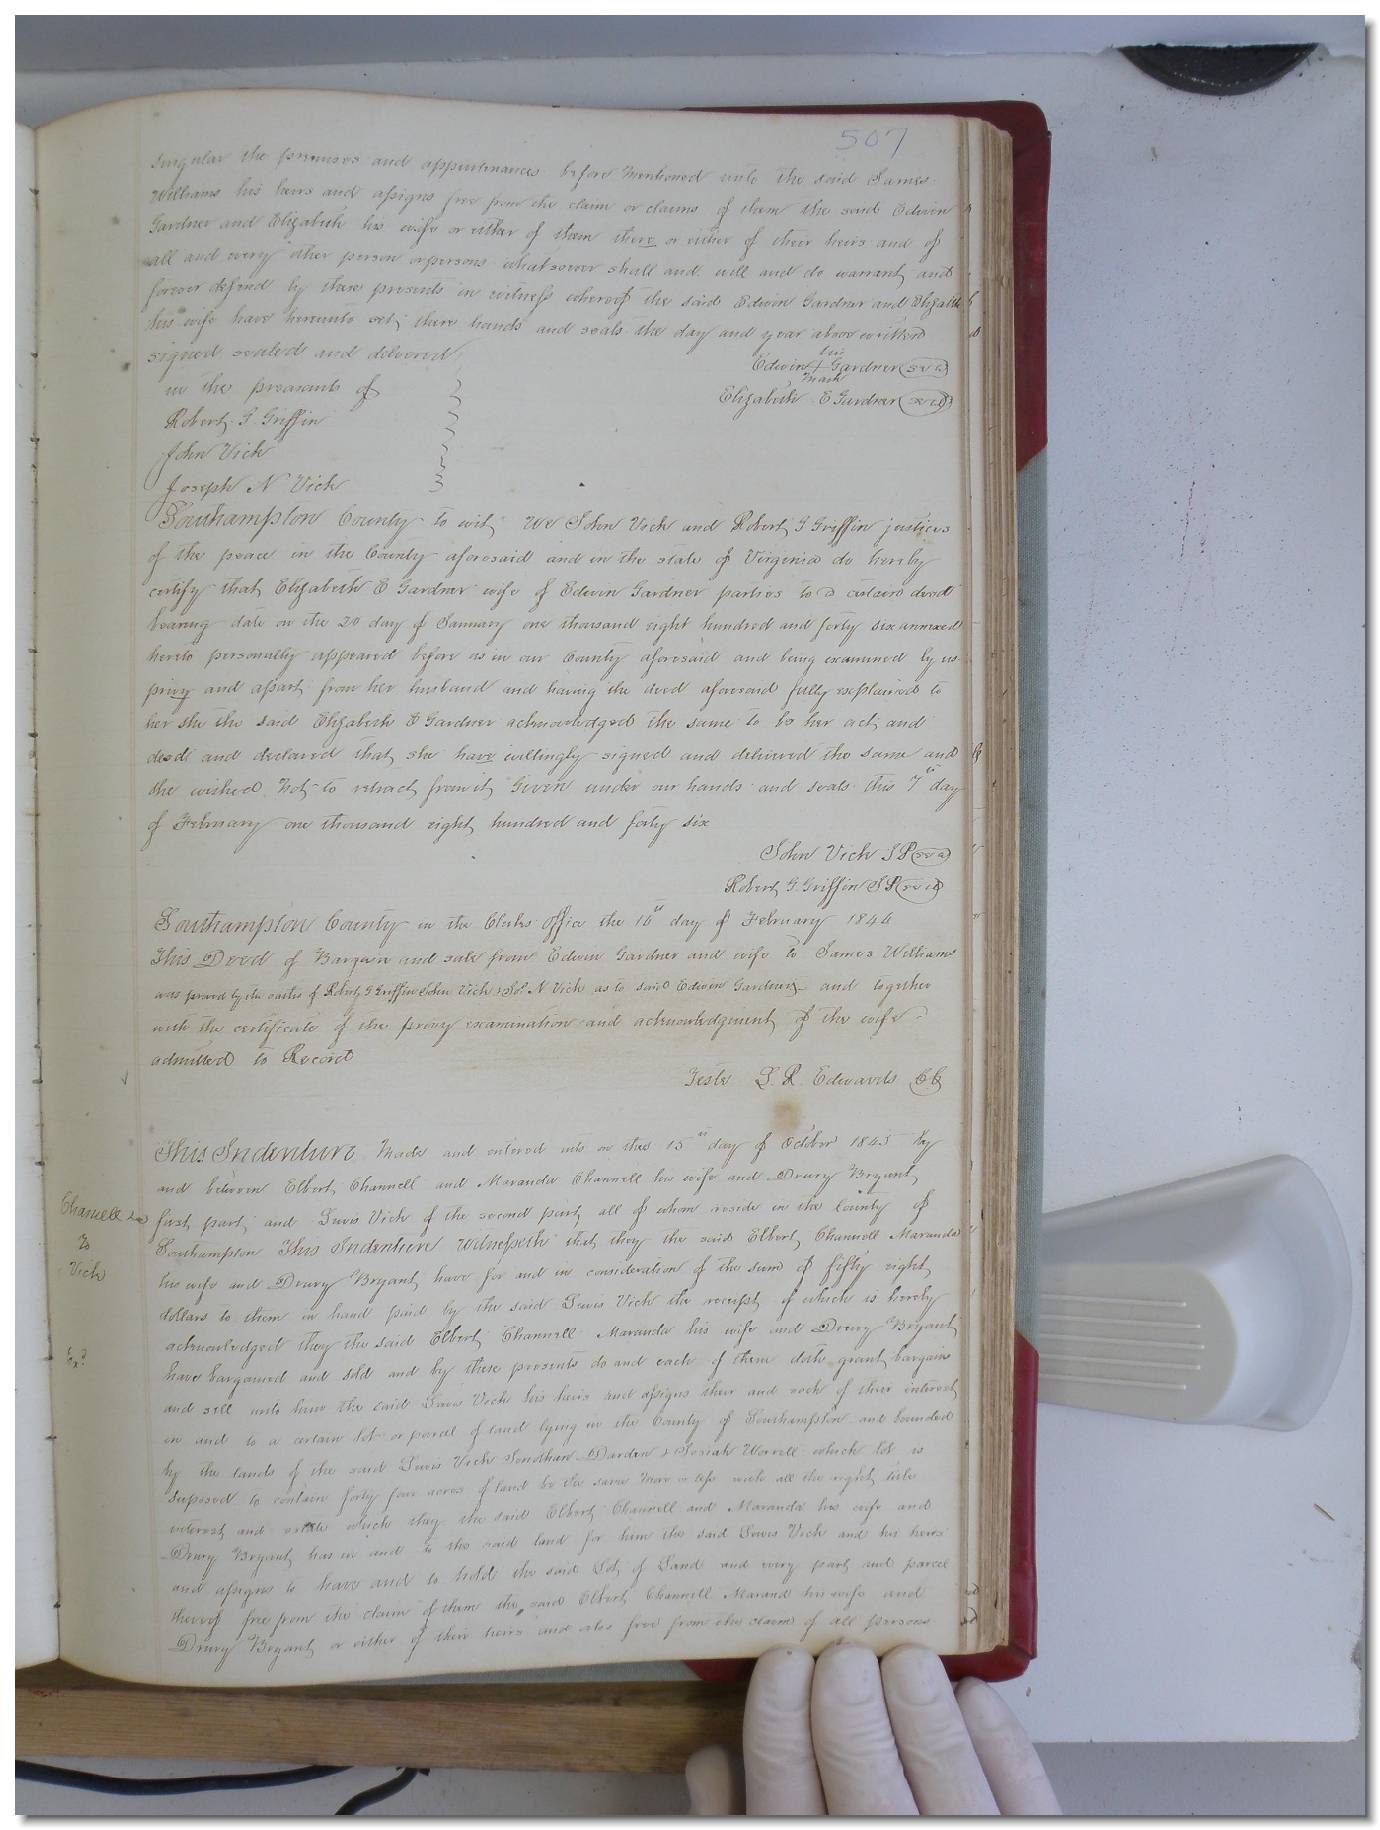 507
Singular the premises and appurtenances before mentioned unto the said James
Williams his heirs and assigns free from the claim or claims of them the said Edwin
Gardner and Elizabeth his wife or either of them there or either of their heirs and of
all and every other person or persons whatsoever shall and will and do warrant and
forever defend by these presents in witness whereof the said Edwin Gardner and Elizabeth
his wife have hereunto set there hands and seals the day and year above written
signed sealed and delivered
his
Edwin + Gardner seal
mark
in the presants of
Elizabeth E Gardner seal
Robert G. Griffin
John Vick
Joseph N Vick
Southampton County to wit, We John Vick and Robert G Griffin justices
of the peace in the County aforesaid and in the state of Virginia do hereby
certify that Elizabeth E Gardner wife of Edwin Gardner parties to a certain deed
bearing date on the 20 day of January one thousand eight hundred and forty six annexed
hereto personally appeared before as in our County aforesaid and being examined by us
privy and apart from her husband and having the deed aforesaid fully explained to
her she the said Elizabeth E Gardner acknowledged the same to be her act and
deed and declared that she have willingly signed and delivered the same and
she wished not to retract from it Given under our hands and seals this 7th day
of February one thousand eight hundred and forty six
John Vick JP seal
Robert G. Griffin JP seal
Southampton County in the Clerks Office the 16th day of February 1846
This Deed of Bargain and sale from Edwin Gardner and wife to James Williams
was proved by the oaths of Robert G Griffin John Vick & Jos N Vick as to said Edwin Gardner and together
with the certificate of the privy examination and acknowledgment of the wife
admitted to Record
Teste L. R. Edwards CC
This Indenture Made and entered into on this 15th day of October 1845 by
and between Elbert Channell and Maranda Channell his wife and Drury Bryant
Channell
first part, and Lewis Vick of the second part, all of whom reside in the County of
to
Southampton This Indenture Witnesseth that they the said Elbert Channell Maranda
Vick
his wife and Drury Bryant have for and in consideration of the sum of fifty eight
dollars to them in hand paid by the said Lewis Vick the receipt of which is hereby
acknowledged they the said Elbert Channell Maranda his wife and Drury Bryant
Exd
have bargained and sold and by these presents do and each of them doth grant bargain
and sell unto him the said Lewis Vick his heirs and assigns their and each of their interest
in and to a certain lot or parcel of land lying in the County of Southampton and bounded
by the lands of the said Lewis Vick Jonathan Darden & Josiah Worrell which lot is
suposed to contain forty four acres of land be the same more or less with all the right title
interest and estate which they the said Elbert Channell and Maranda his wife and
Drury Bryant has in and to the said land for him the said Lewis Vick and his heirs
and assigns to have and to hold the said Lot of Land and every part and parcel
thereof free from the claim of them the said Elbert Channell Marand his wife and
Drury Bryant or either of their heirs and also free from the claim of all persons